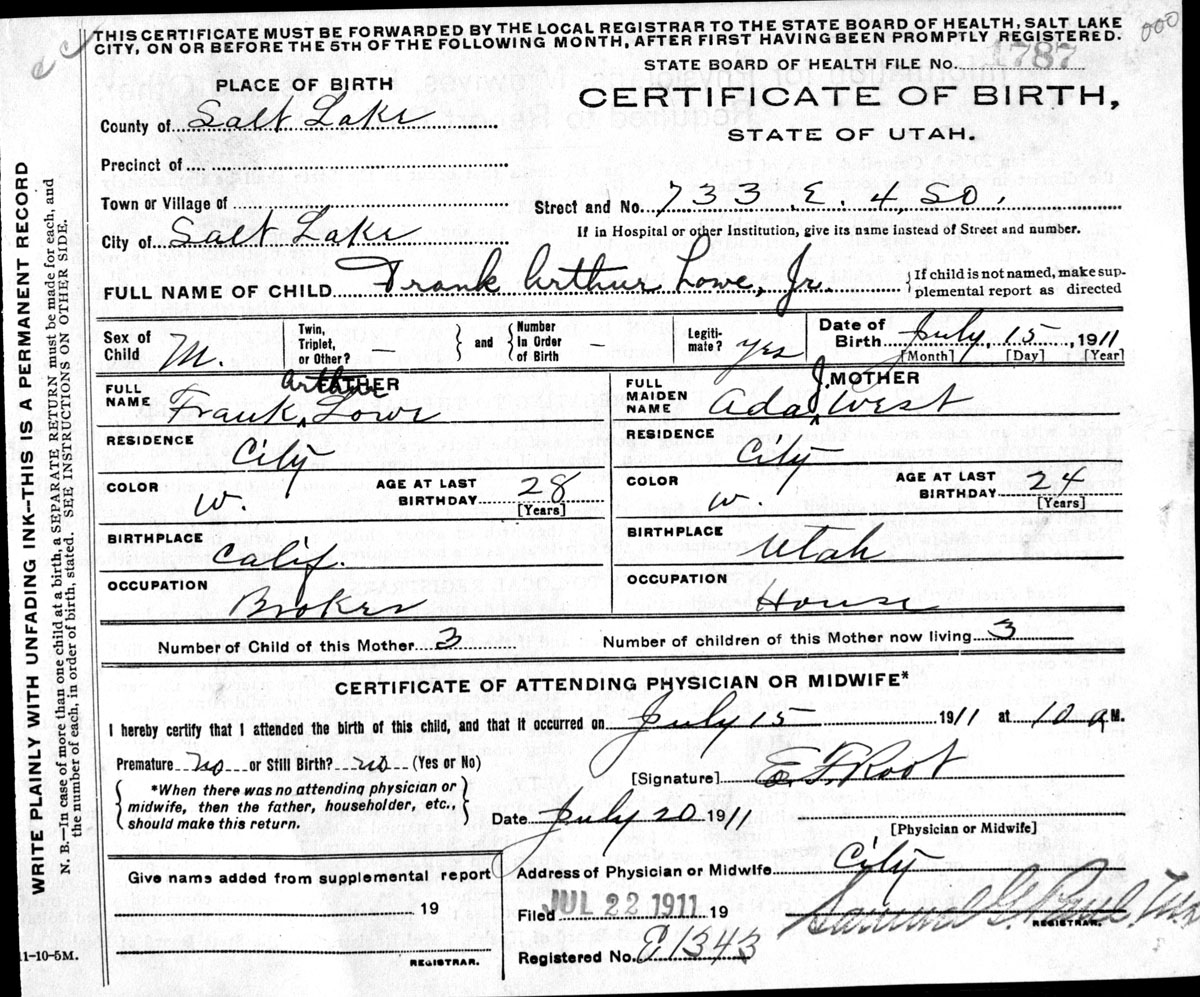 THIS CERTIFICATE MUST BE FORWARDED BY THE LOCAL REGISTRAR TO THE STATE BOARD OF HEALTH, SALT LAKE
CITY, ON OR BEFORE THE 5TH OF THE FOLLOWING MONTH, AFTER FIRST HAVING BEEN PROMPTLY REGISTERED.
000
STATE BOARD OF HEALTH FILE No. 1787
PLACE OF BIRTH
CERTIFICATE OF BIRTH,
STATE OF UTAH.
County of Salt Lake
Precinct of
Town or Village of
Street and No. 733 E. 4, SO,
City of Salt Lake
If in Hospital or other Institution, give its name instead of Street and number.
FULL NAME OF CHILD Frank Arthur Lowe, Jr. {If child is not named, make sup-
plemental report as directed
Sex of Child M. Twin, Triplet, or Other? – } and { Number In Order of Birth – Legiti-mate? yes Date of Birth July, 15, 1911
[Month] [Day] [Year]
FATHER
FULL NAME Frank Arthur Lowe
MOTHER
FULL MAIDEN NAME Ada J. West
RESIDENCE City
RESIDENCE City
COLOR W. AGE AT LAST BIRTHDAY 28 [Years]
COLOR W. AGE AT LAST BIRTHDAY 24 [Years]
BIRTHPLACE Calif.
BIRTHPLACE Utah
OCCUPATION Broker
OCCUPATION House
Number of Child of this Mother 3 Number of children of this Mother now living 3
CERTIFICATE OF ATTENDING PHYSICIAN OR MIDWIFE*
I hereby certify that I attended the birth of this child, and that it occurred on July 15 1911 at 10 a M.
Premature no or Still Birth? no (Yes or No)
[Signature] E. F. Root
*When there was no attending physician or
midwife, then the father, householder, etc.,
should make this return.
Date July 20 1911
[Physician or Midwife]
Give name added from supplemental report
Address of Physician or Midwife City
19
Filed JUL 22 1911 19
Samuel G. Paul
REGISTRAR.
REGISTRAR.
Registered No. E1343
11-10-5M.
WRITE PLAINLY WITH UNFADING INK—THIS IS A PERMANENT RECORD
N. B.—In case of more than one child at a birth, a SEPARATE RETURN must be made for each, and
the number of each, in order of birth, stated. SEE INSTRUCTIONS ON OTHER SIDE.